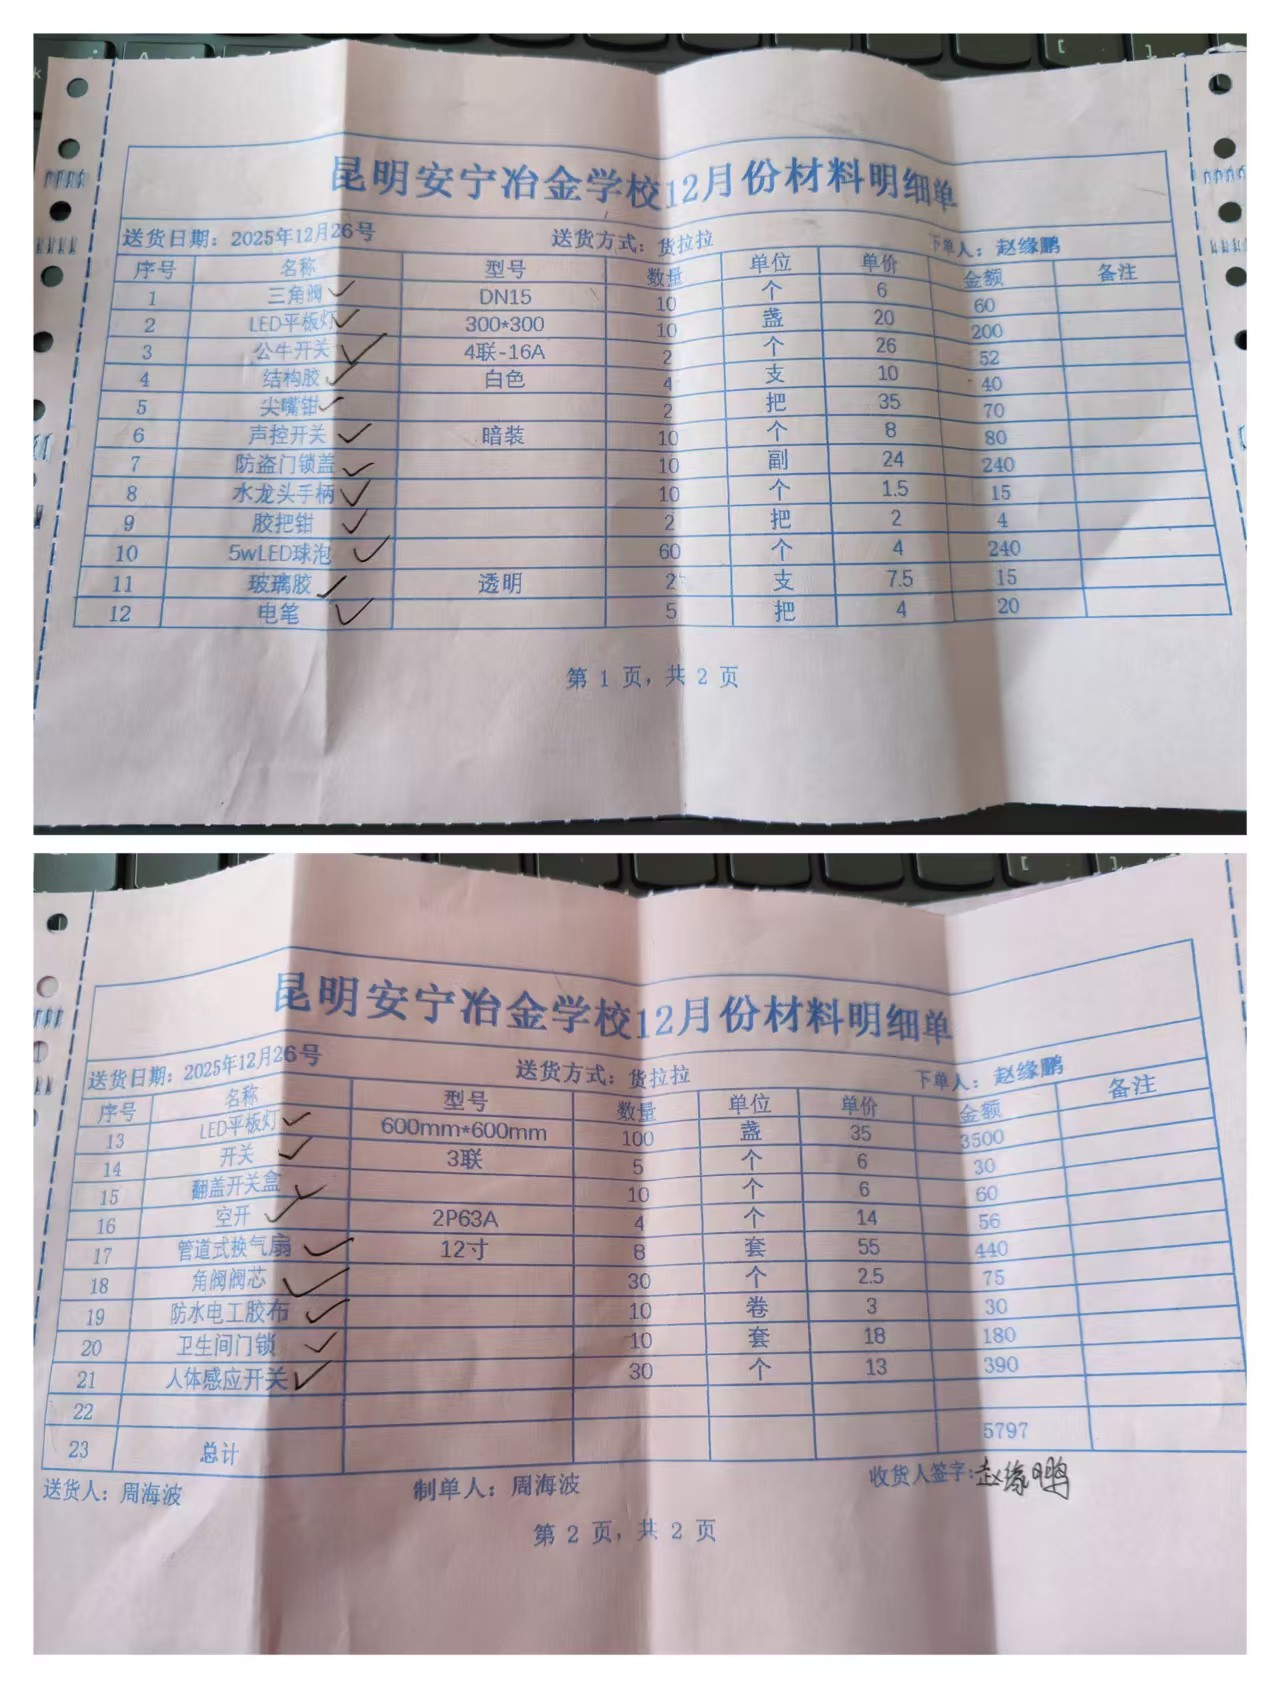 昆明安宁冶金学校12月份材料明细单
送货日期：2025年12月26号 送货方式：货拉拉 下单人：赵缘鹏
序号 名称 型号 数量 单位 单价 金额 备注
1 三角阀 DN15 10 个 6 60
2 LED平板灯 300*300 10 盏 20 200
3 公牛开关 4联-16A 2 个 26 52
4 结构胶 白色 4 支 10 40
5 尖嘴钳 2 把 35 70
6 声控开关 暗装 10 个 8 80
7 防盗门锁盖 10 副 24 240
8 水龙头手柄 10 个 1.5 15
9 胶把钳 2 把 2 4
10 5wLED球泡 60 个 4 240
11 玻璃胶 透明 2 支 7.5 15
12 电笔 5 把 4 20
第 1 页，共 2 页
昆明安宁冶金学校12月份材料明细单
送货日期：2025年12月26号 送货方式：货拉拉 下单人：赵缘鹏
序号 名称 型号 数量 单位 单价 金额 备注
13 LED平板灯 600mm*600mm 100 盏 35 3500
14 开关 3联 5 个 6 30
15 翻盖开关盒 10 个 6 60
16 空开 2P63A 4 个 14 56
17 管道式换气扇 12寸 8 套 55 440
18 角阀阀芯 30 个 2.5 75
19 防水电工胶布 10 卷 3 30
20 卫生间门锁 10 套 18 180
21 人体感应开关 30 个 13 390
22
23 总计 5797
送货人：周海波 制单人：周海波 收货人签字：赵缘鹏
第 2 页，共 2 页